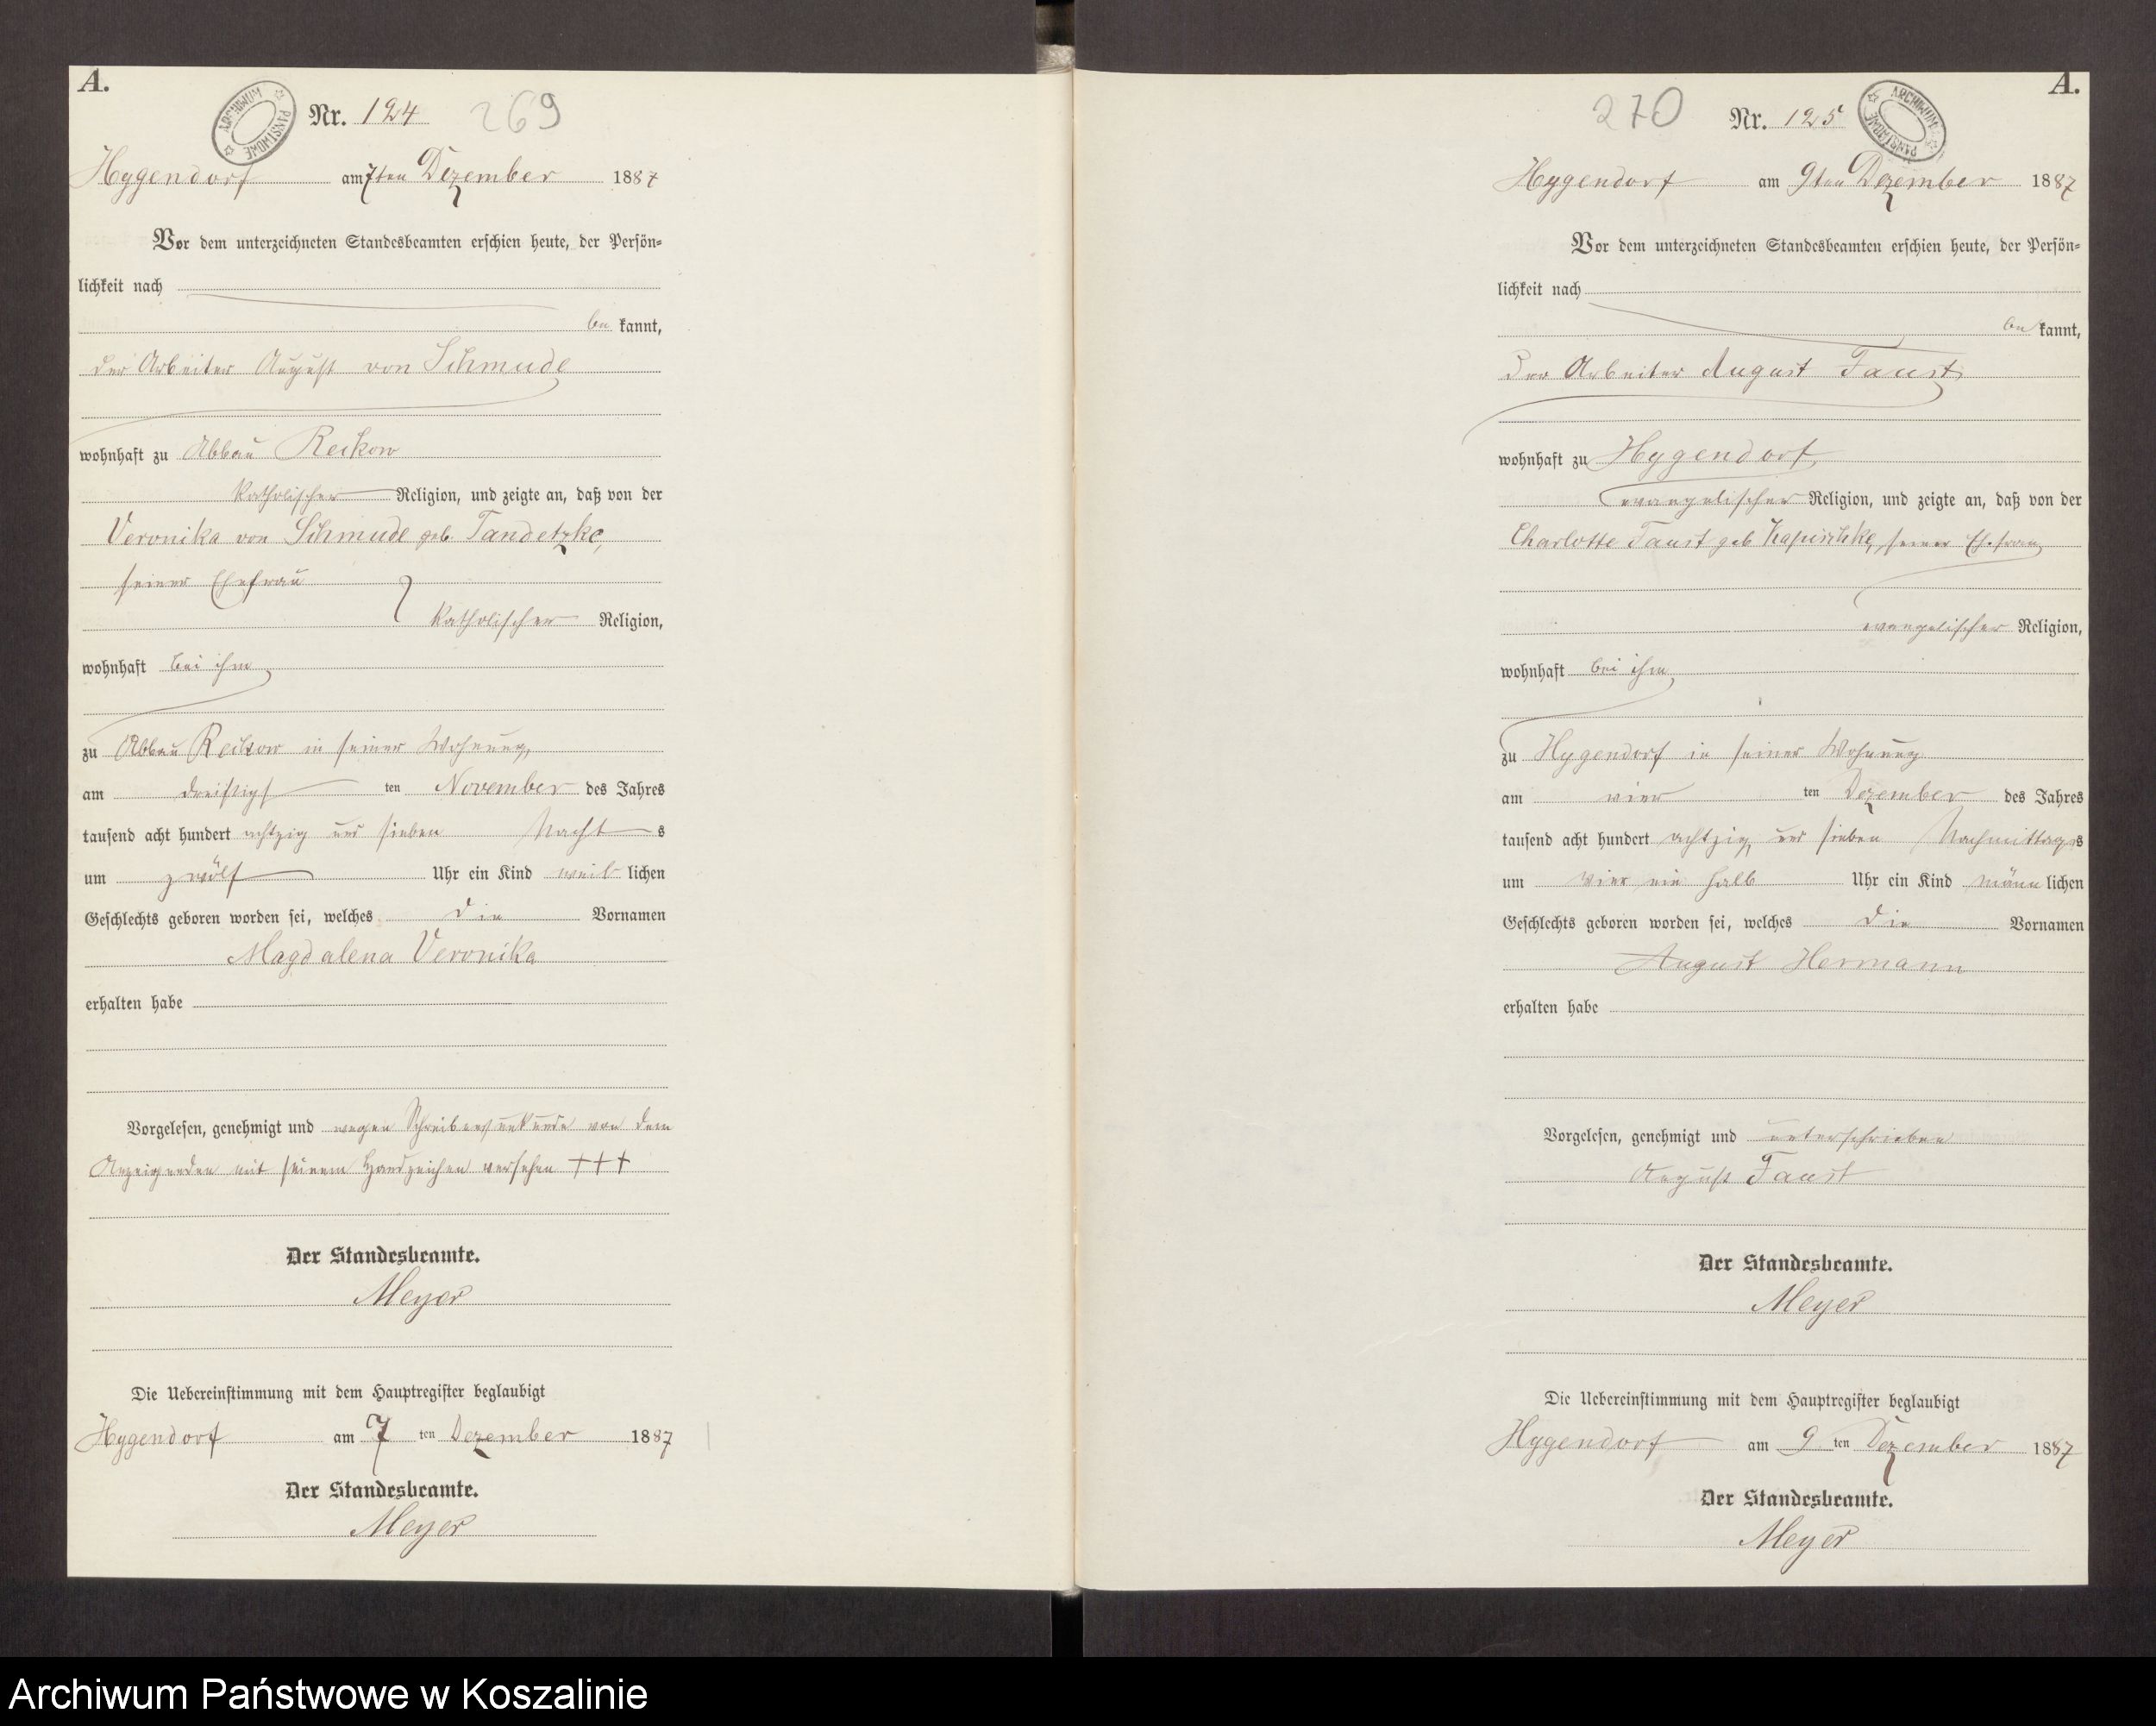 A.
ARCHIWUM PAŃSTWOWE
Nr. 124 269
Hygendorf am 7ten Dezember 1887
Vor dem unterzeichneten Standesbeamten erschien heute, der Persön-
lichkeit nach
be kannt,
der Arbeiter August von Schmude
wohnhaft zu Abbau Reckow
katholischer Religion, und zeigte an, daß von der
Veronika von Schmude geb. Tandetzke,
seiner Ehefrau
katholischer Religion,
wohnhaft bei ihm
zu Abbau Reckow in seiner Wohnung,
am dreißigs ten November des Jahres
tausend acht hundert achtzig und sieben Nacht s
um zwölf Uhr ein Kind weib lichen
Geschlechts geboren worden sei, welches die Vornamen
Magdalena Veronika
erhalten habe
Vorgelesen, genehmigt und wegen Schreibensunkunde von dem
Anzeigenden mit seinem Handzeichen versehen +++
Der Standesbeamte.
Meyer
Die Uebereinstimmung mit dem Hauptregister beglaubigt
Hygendorf am 7 ten Dezember 1887
Der Standesbeamte.
Meyer
A.
270 Nr. 125
ARCHIWUM PAŃSTWOWE
Hygendorf am 9ten Dezember 1887
Vor dem unterzeichneten Standesbeamten erschien heute, der Persön-
lichkeit nach
be kannt,
der Arbeiter August Faust
wohnhaft zu Hygendorf,
evangelischer Religion, und zeigte an, daß von der
Charlotte Faust geb Kapischke, seiner Ehefrau
evangelischer Religion,
wohnhaft bei ihm,
zu Hygendorf in seiner Wohnung
am vier ten Dezember des Jahres
tausend acht hundert achtzig und sieben Nachmittag s
um vier ein halb Uhr ein Kind männ lichen
Geschlechts geboren worden sei, welches die Vornamen
August Hermann
erhalten habe
Vorgelesen, genehmigt und unterschrieben
August Faust
Der Standesbeamte.
Meyer
Die Uebereinstimmung mit dem Hauptregister beglaubigt
Hygendorf am 9 ten Dezember 1887
Der Standesbeamte.
Meyer
Archiwum Państwowe w Koszalinie